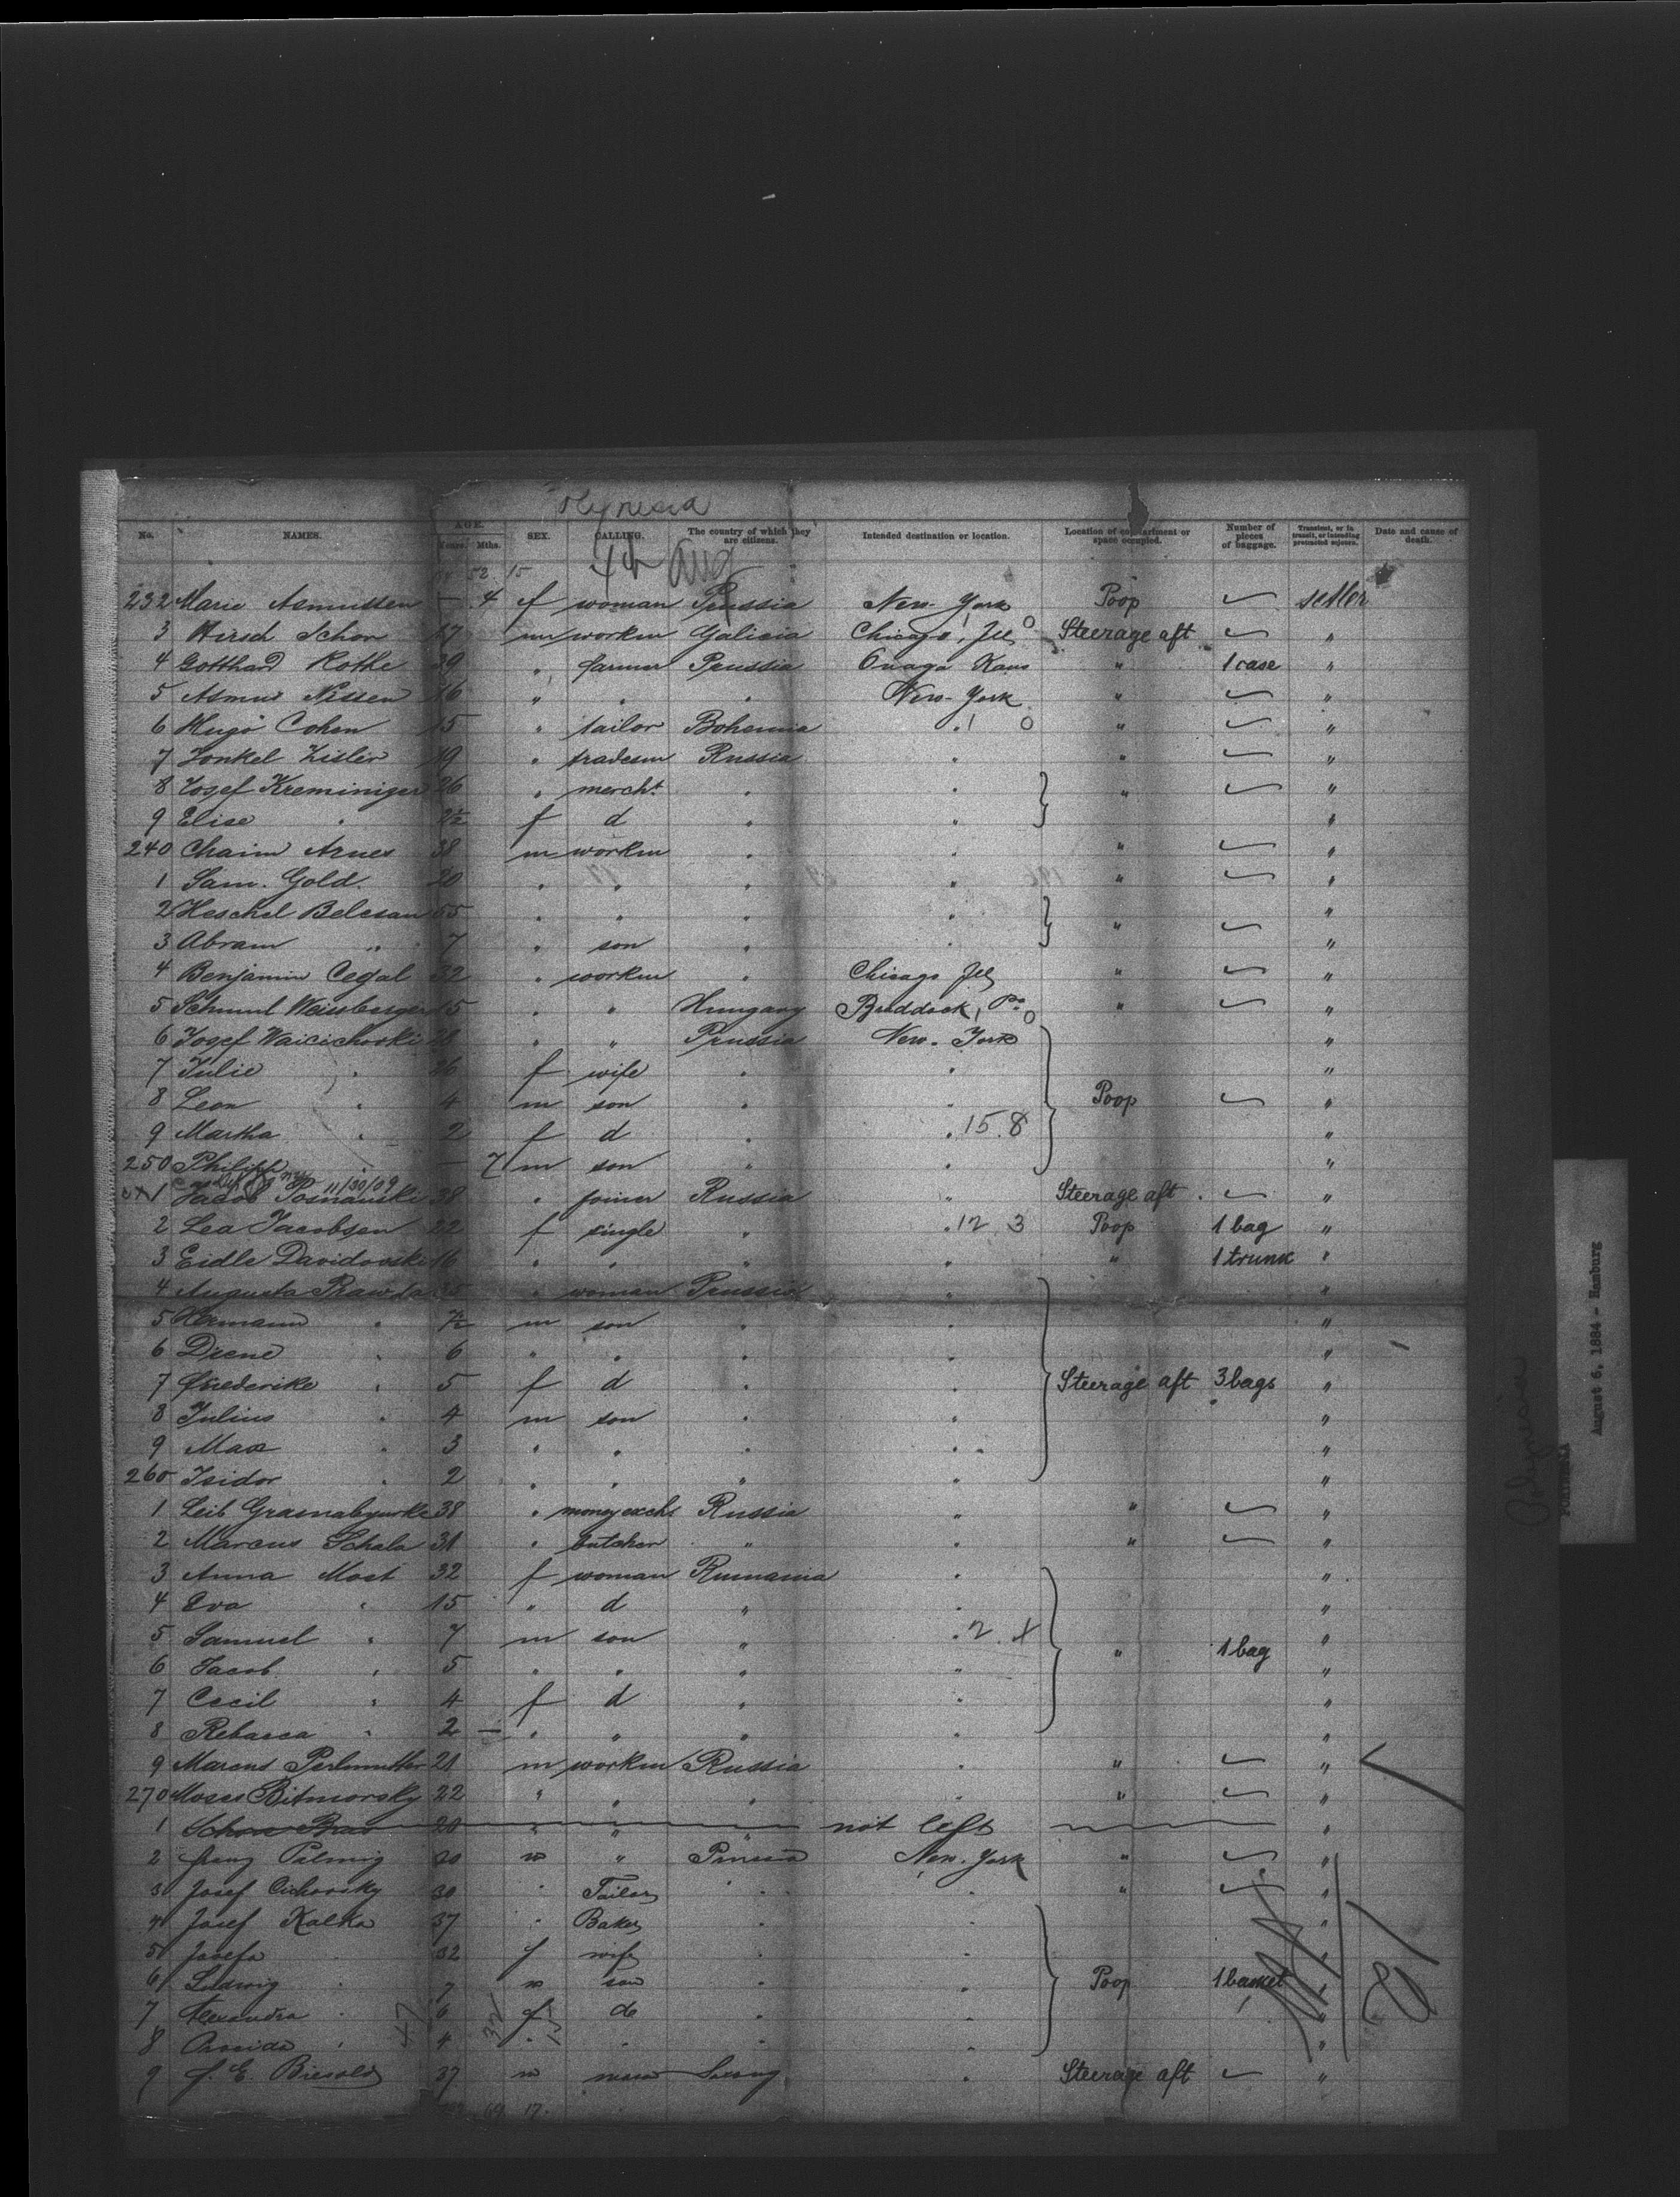 Polynesia
No. NAMES. AGE. Years. Mths. SEX. CALLING. The country of which they are citizens. Intended destination or location. Location of compartment or space occupied. Number of pieces of baggage. Transient, or in transit, or intending protracted sojourn. Date and cause of death.
4th Aug
52 15
232 Marie Asmussen — 4 f woman Prussia New-York Poop settler
3 Hirsch Schor 27 m workm Galicia Chicago, Ill 0 Steerage aft "
4 Gotthard Rothe 39 " farmer Prussia Onaga Kans " 1 case "
5 Asmus Nissen 16 " " " New-York " "
6 Hugo Cohen 15 " tailor Bohemia " 1 0 " "
7 Jonkel Zisler 19 " tradesm Russia " " "
8 Josef Kreminiger 26 " mercht " " " "
9 Elise " f d " " "
240 Chaim Arnes 38 m workm " " " "
1 Sam. Gold. 20 " " " " " "
2 Heschel Belesan 55 " " " " "
3 Abram " 7 " son " " " "
4 Benjamin Cegal 32 " workm " Chicago Ill " "
5 Schmul Weissberger 15 " " Hungary Braddock, Pa 0 " "
6 Josef Waicichovski 28 " " Prussia New-York "
7 Julie " 26 f wife " " "
8 Leon " 4 m son " " Poop "
9 Martha " 2 f d " " 15.8 "
250 Philipp " — 7 m son " " "
11/30/09
1 Jacob Posnanski 38 " joiner Russia " Steerage aft "
2 Lea Jacobsen 22 f single " " 12 3 Poop 1 bag "
3 Eidle Davidovski 16 " " " " " 1 trunk "
4 Augusta Rawda 35 " woman Prussia " "
5 Hermann " 7½ m son " " "
6 Drene " 6 " " " " "
7 Friederike " 5 f d " " Steerage aft 3 bags "
8 Julius " 4 m son " " "
9 Max " 3 " " " " "
260 Isidor " 2 " " " " "
1 Leib 38 " money exch Russia " " "
2 Marcus Schala 31 " butcher " " " "
3 Anna Most 32 f woman Rumania " "
4 Eva " 15 " d " " "
5 Samuel " 7 m son " " 2 X "
6 Jacob " 5 " " " " " 1 bag "
7 Cecil " 4 f d " " "
8 Rebacca " 2 — " " " " "
9 Marcus Perlmutter 21 m workm Russia " " "
270 Moses Bitmorsky 22 " " " " " "
1 20 " " " not left "
2 Franz Palmig 20 m " Prussia New-York " "
3 Josef Cichovsky 30 " Tailor " " " "
4 Josef Kalka 37 " Baker " " "
5 Josefa " 32 f wife " " "
6 Ludwig " 7 m son " " Poop 1 basket "
7 Alexandra " 6 f do " " "
8 " 4 " " " " "
9 F. E. Biesold 37 m Saxony " Steerage aft "
69 17
Polynesia
POLYNESIA
August 6, 1884 - Hamburg